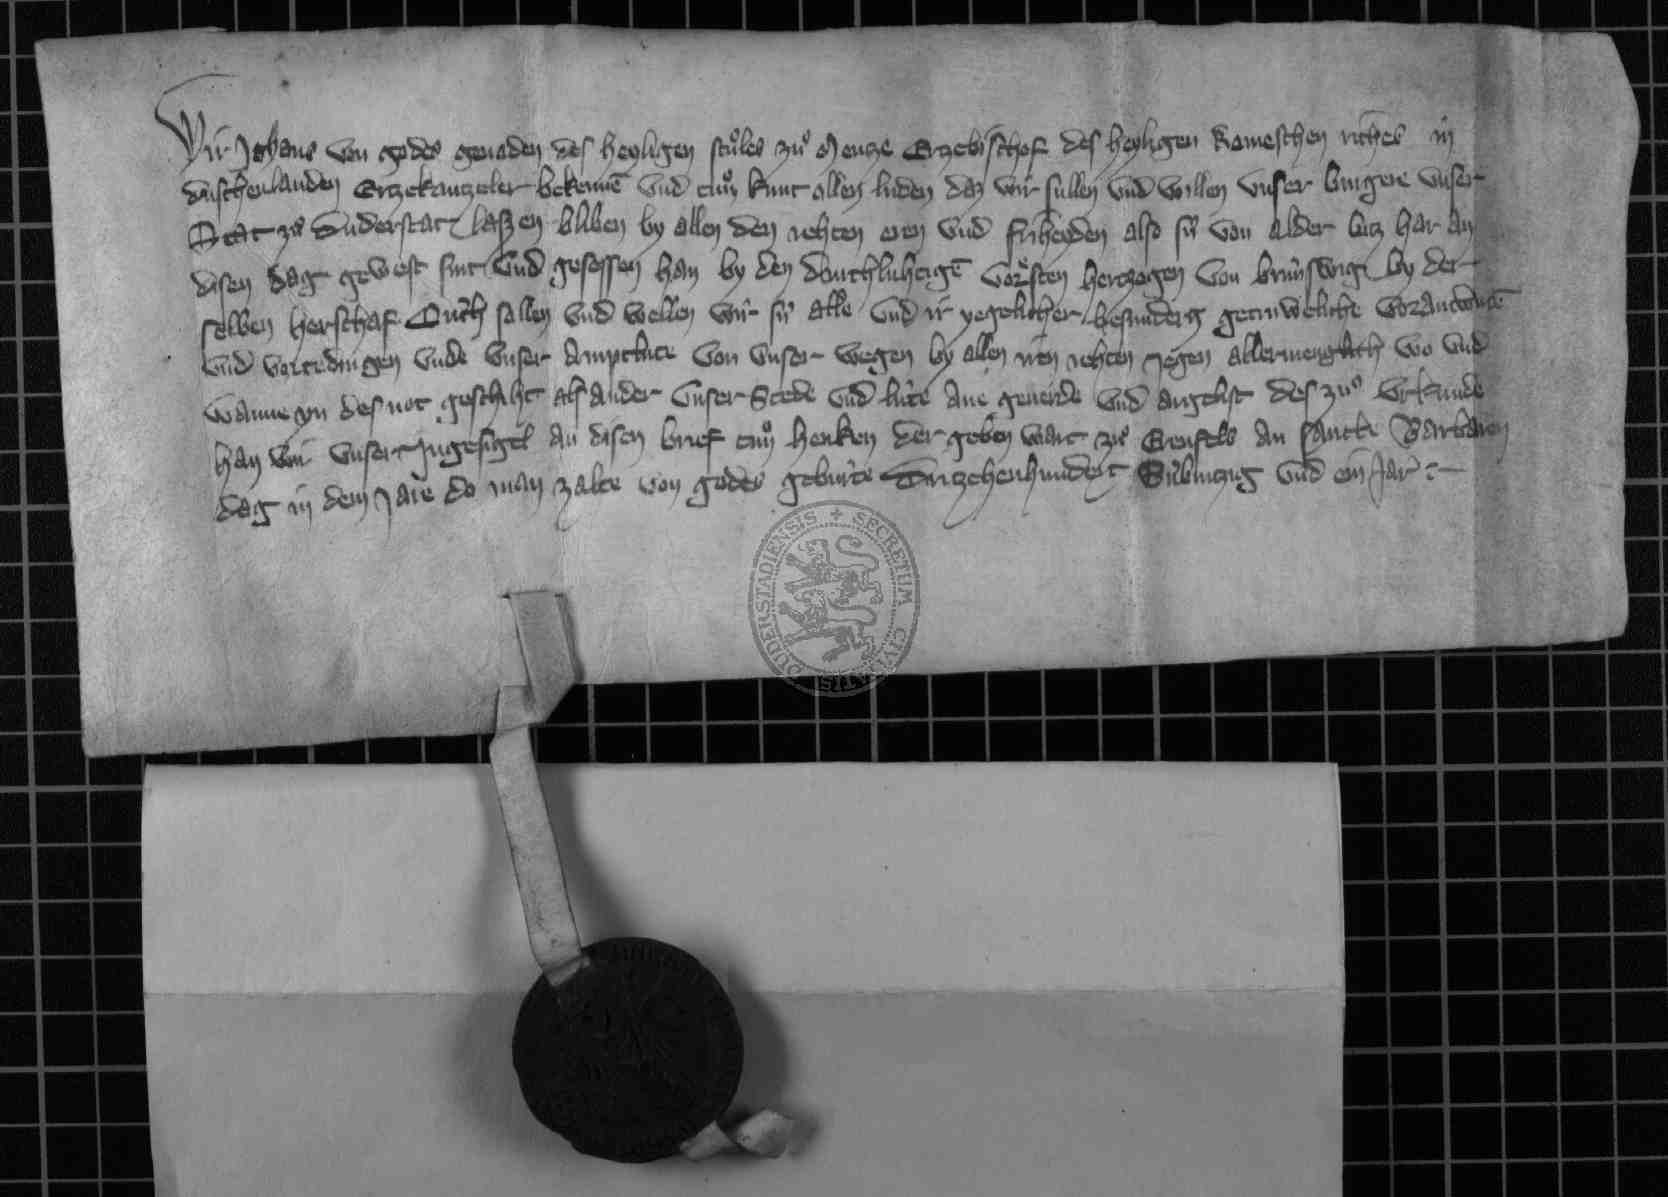 Wir Johans von godes genaden des heyligen stuͦles zuͦ Mentze Ertzebischof des heyligen Romeschen riches in
dutschenlanden Ertzekantzeler bekennē und tuͦn kunt allen luden daz wir sullen und willen unser burgere unser
Stat zuͦ Duderstat laszen bliben by allen den rehten eren und friheyden also si von alder bitz har an
disen dag gewest sint und gesessen han by den durchluhtigē vorsten hertzogen von brunswig by der
selben herschaf Ouch sollen und wellen wir si alle und ir yegelicher besunder getruweliche vorantwurtē
und vortedingen unde unser amptlute von unser wegen by allen iren rehten iegen allermenglich wo und
wanne yn des not geschiht als ander unser Stede und lute ane geuerde und argelist des zuͦ Urkunde
han wir unser Ingesigel an disen brief tuͦn henken der geben wart zuͦ Erenfels an sancte Barbaren
dag in dem Jare do man zalte von godes geburte Dritzehenhundert Sibintzig und ein Jar
SECRETUM CIVITATIS DUDERSTADIENSIS